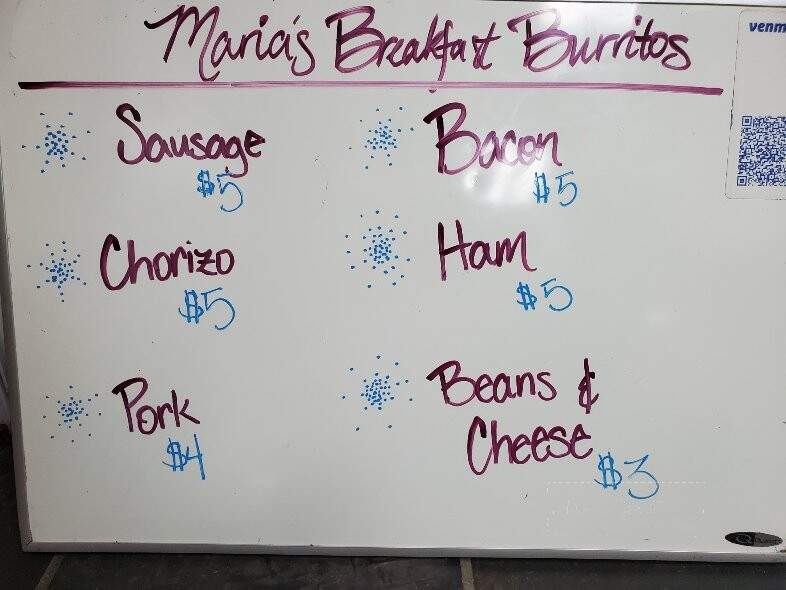 Maria's Breakfast Burritos
venm
Sausage
$5
Bacon
$5
Chorizo
$5
Ham
$5
Pork
$4
Beans &
Cheese
$3